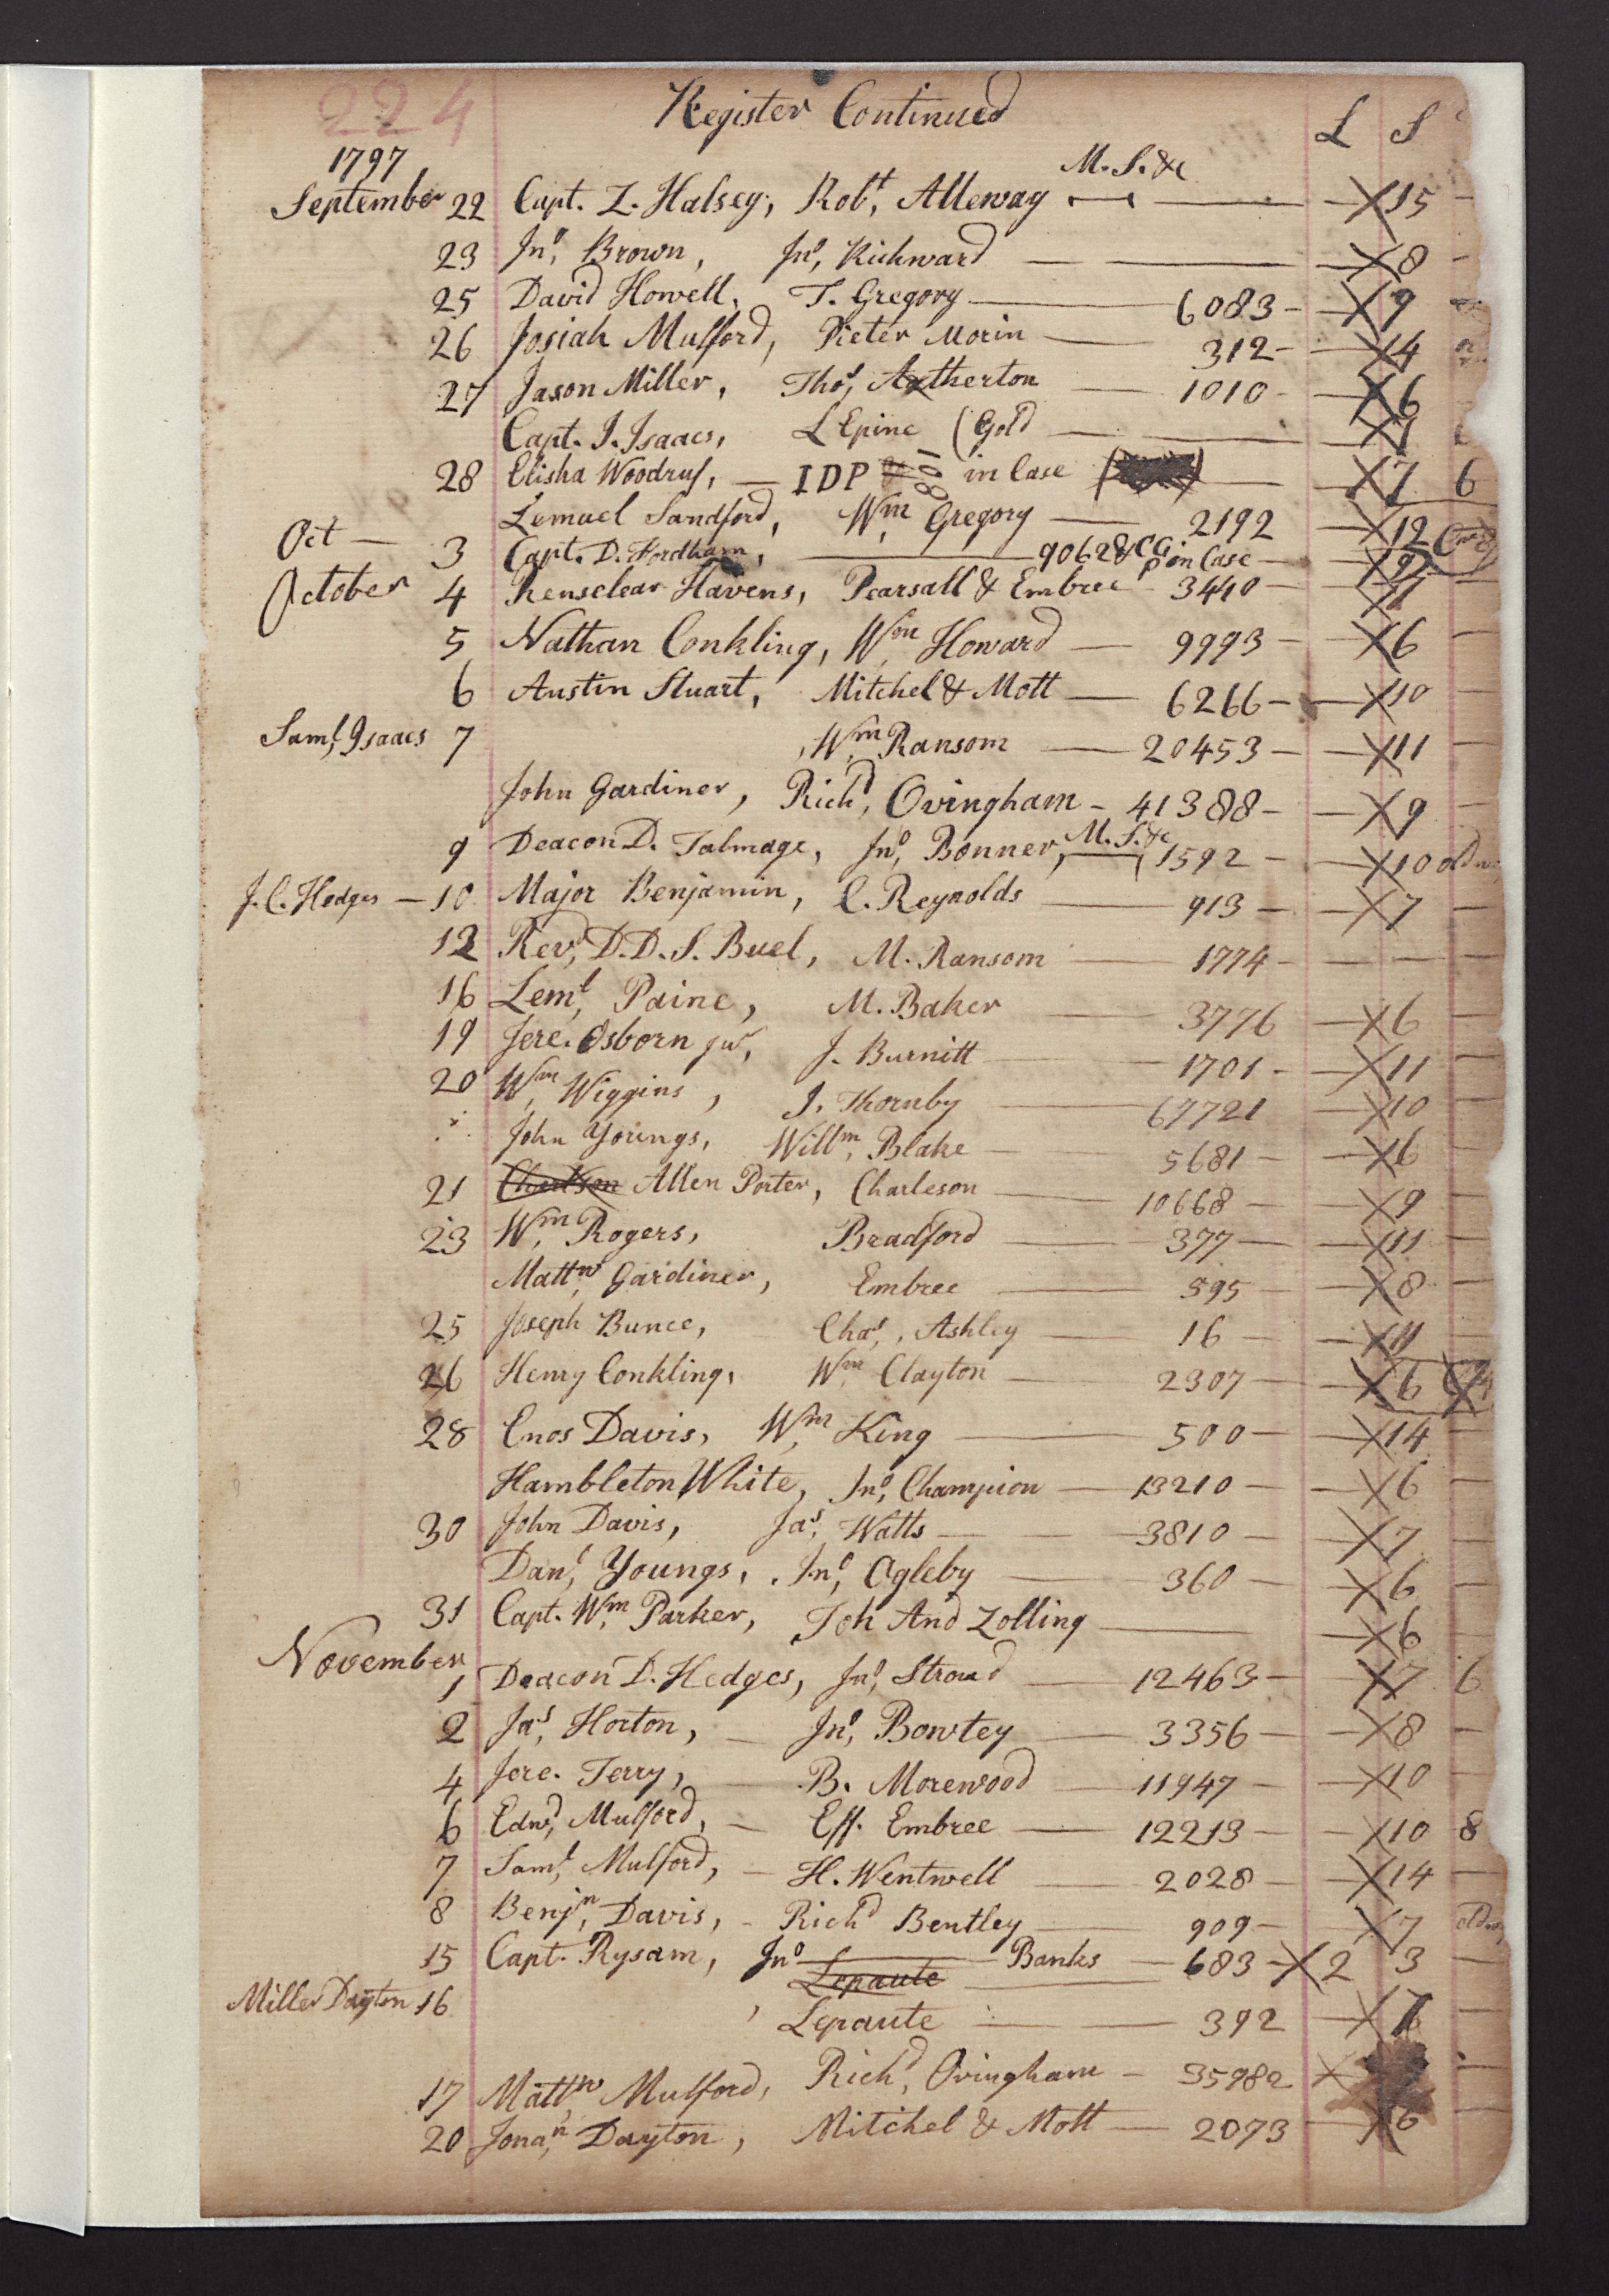 224
Register Continued
L S
1797
M. S. &c
September 22 Capt. Z. Halsey, Robt, Alleway — X 15 —
23 Jno, Brown, Jno, Richward — X 8 —
25 David Howell, T. Gregory — 6083 — X 9
26 Josiah Mulford, Pieter Morin — 312 — X 14
27 Jason Miller, Thos, Atherton — 1010 — X 6
Capt. I. Isaacs, L Epine (Gold — X
28 Elisha Woodruf, — IDP 801 in Case — X 7 6
Lemuel Sandford, Wm, Gregory — 2192 — X 12
Oct — 3 Capt. D. Fordham, — 90628 on Case — X 9
October 4 Renselear Havens, Pearsall & Embree 3440 — X 11 —
5 Nathan Conkling, Wm, Howard — 9993 — X 6 —
6 Austin Stuart, Mitchel & Mott — 6266 — X 10 —
Saml, Isaacs 7 , Wm, Ransom — 20453 — X 11 —
John Gardiner, Richd, Ovingham — 41388 — X 9 —
M. S. &c
9 Deacon D. Talmage, Jno, Bonner, — 1592 — X 10
J. C. Hedges — 10 Major Benjamin, C. Reynolds — 913 — X 7 —
12 Revd, D. D. S. Buel, M. Ransom — 1774 — — —
16 Leml, Paine, M. Baker — 3776 — X 6 —
19 Jere. Osborn jur, J. Burnitt — 1701 — X 11 —
20 Wm, Wiggins, J. Thornby — 67721 — X 10 —
John Yorings, Willm, Blake — 5681 — X 6 —
21 Charlson Allen Porter, Charleson — 10668 — X 9 —
23 Wm, Rogers, Bradford — 377 — X 11 —
Mattw, Gardiner, Embree — 595 — X 8 —
25 Joseph Bunce, Chas, , Ashley — 16 — X 11 —
26 Henry Conkling, Wm, Clayton — 2307 — X 6
28 Enos Davis, Wm, King — 500 — X 14 —
Hambleton White, Jno, Champion — 13210 — X 6 —
30 John Davis, Jas, Watts — 3810 — X 7 —
Danl, Youngs, Jno, Ogleby — 360 — X 6 —
31 Capt. Wm, Parker, Joh And Zolling — X 6 —
November
1 Deacon D. Hedges, Jno, Stroud — 12463 — X 7 6
2 Jas, Horton, — Jno, Bowtey — 3356 — X 8 —
4 Jere. Terry, — B. Morewood — 11947 — X 10 —
6 Edwd, Mulford, — Eff. Embree — 12213 — X 10 8
7 Saml, Mulford, — H. Wentwell — 2028 — X 14 —
8 Benjn, Davis, — Richd Bentley — 909 — X 7
15 Capt. Rysam, Jno — Banks — 683 — X 2 3 —
Lepaute
Miller Dayton 16 , Lepaute — 392 — X 7 —
17 Mattw, Mulford, Richd, Ovingham — 35982 X —
20 Jonan, Dayton, Mitchel & Mott — 2073 — X 6 —